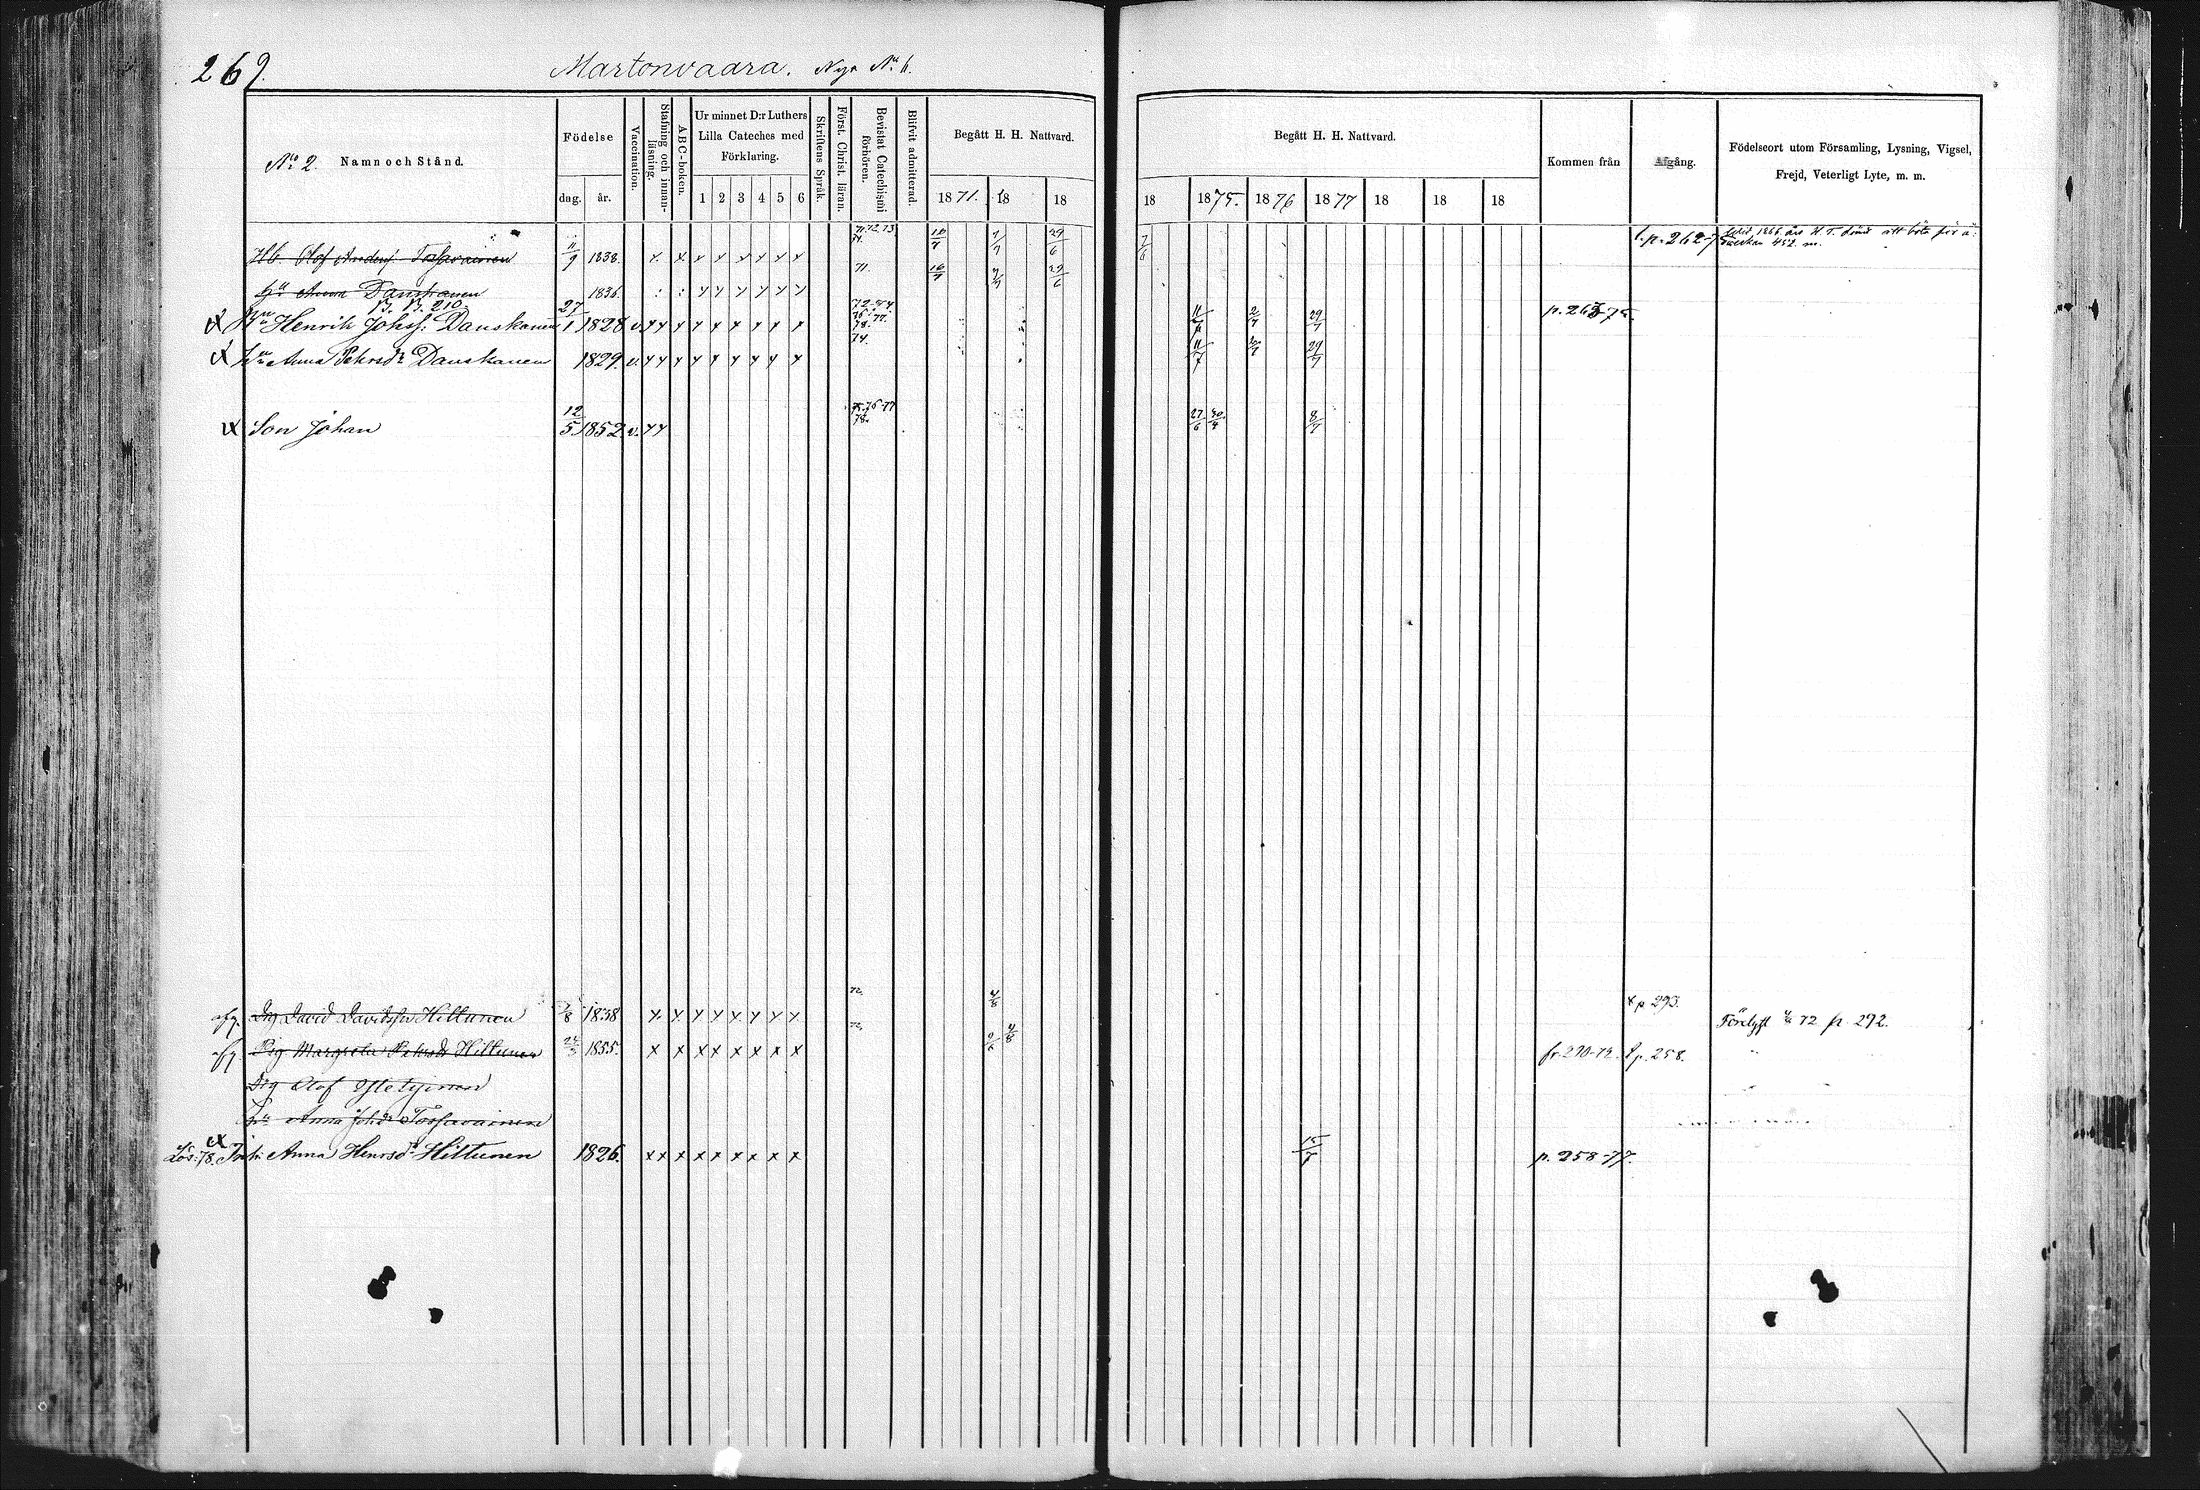 269.
Martonvaara. Nya No 6.
No 2. Namn och Stånd.
Födelse
dag. år.
Vaccination.
Stafning och innanläsning.
ABC-boken.
Ur minnet D:r Luthers Lilla Cateches med Förklaring.
1 2 3 4 5 6
Skriftens Språk.
Först. Christ. läran.
Bevistat Catechismi förhören.
Blifvit admitterad.
Begått H. H. Nattvard.
1871. 18 18
Begått H. H. Nattvard.
18 1875. 1876 1877 18 18 18
Kommen från
Afgång.
Födelseort utom Församling, Lysning, Vigsel, Frejd, Veterligt Lyte, m. m.
Hb. Olof Andersf Tossavainen 11/9 1838. x x x x x x x x 71.72.73 74. 7/7 29/6 7/6 t. p. 262-75
hu Anna Danskanen 1836. : : x x x x x x 71. 29/6
B. B. 210.
Henrik Johsf: Danskanen 27/1 1828 v. x x x x x x x x x 72-74. 76. 77. 78. 11/7 2/7 29/7 p. 263-75.
hu Anna Pehrsdr Danskanen 1829. v. x x x x x x x x x 74. 11/7 2/7 29/7
Son Johan 12/5 1852 v. x x 75.76-77 78. 27/6 30/4 8/7
afg. Dg David Davidsson Hiltunen 7/8 1838 x x x x x x x x 72. t p 293. p 292.
afg. Pig Margreta Pehrsdr Hiltunen 1855. x x x x x x x x 72. fr. 290-72. t p. 258.
Dg Olof
hu Anna Johdr Tossavainen
Lös: 78. Anna Henrsdr Hiltunen 1826. x x x x x x x x x 15/7 p. 258-77.